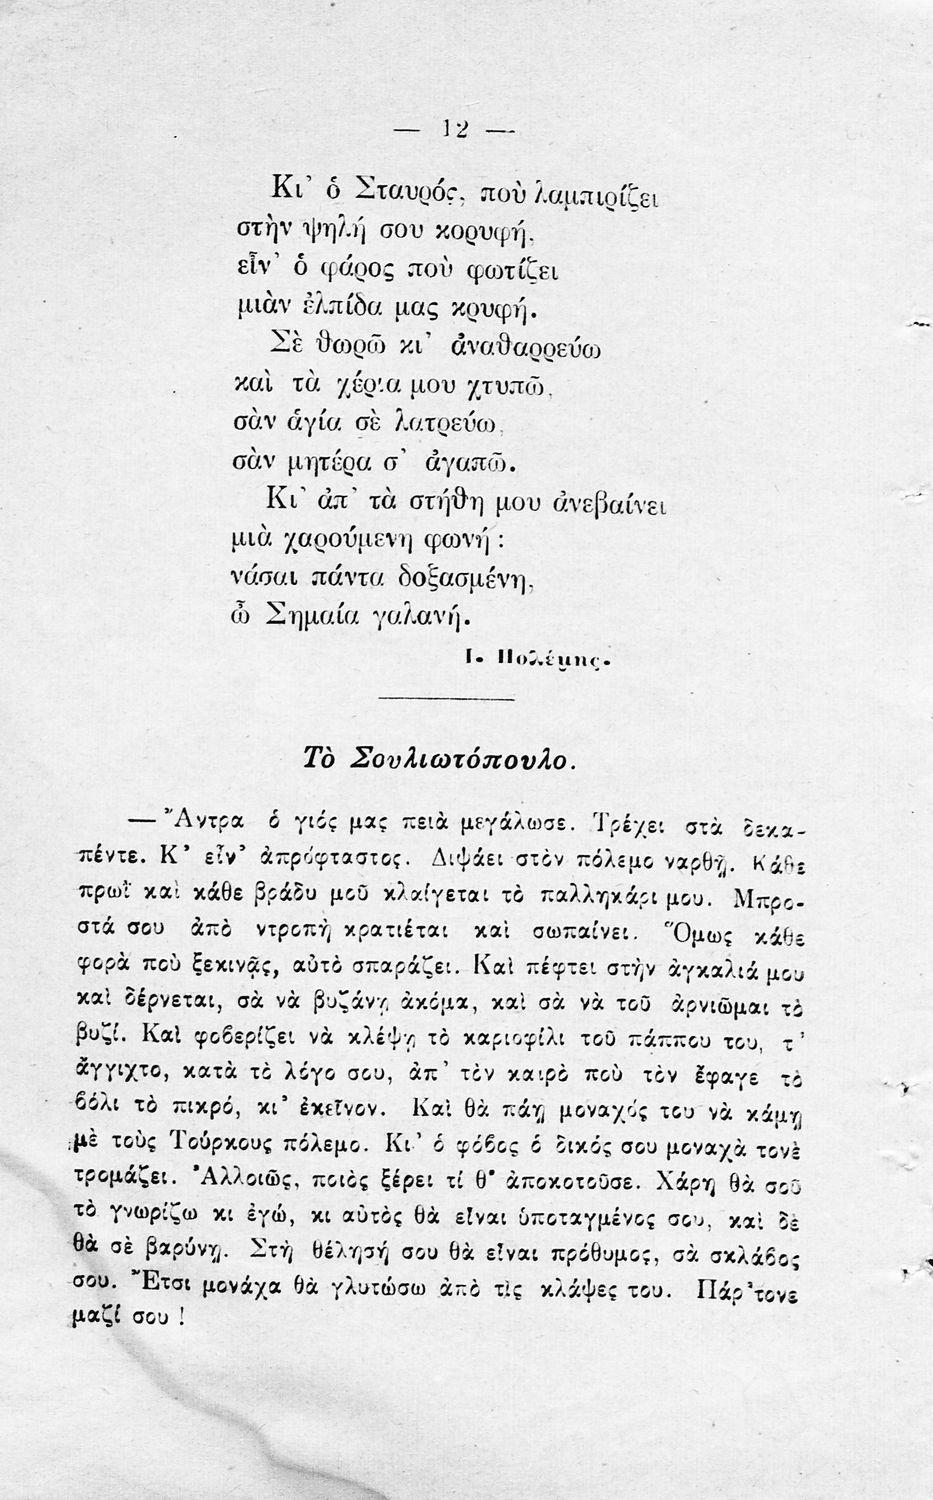 — 12 —
Κι᾽ ὁ Σταυρός, ποὺ λαμπιρίζει
στὴν ψηλή σου κορυφή,
εἶν᾽ ὁ φάρος ποὺ φωτίζει
μιὰν ἐλπίδα μας κρυφή.
Σὲ θωρῶ κι᾽ ἀναθαρρεύω
καὶ τὰ χέρια μου χτυπῶ,
σὰν ἁγία σὲ λατρεύω,
σὰν μητέρα σ᾽ ἀγαπῶ.
Κι᾽ ἀπ᾽ τὰ στήθη μου ἀνεβαίνει
μιὰ χαρούμενη φωνή :
νάσαι πάντα δοξασμένη,
ὦ Σημαία γαλανή.
Ι. Πολέμης.
Τὸ Σουλιωτόπουλο.
— Ἄντρα ὁ γιός μας πειὰ μεγάλωσε. Τρέχει στὰ δεκα-
πέντε. Κ᾽ εἶν᾽ ἀπρόφταστος. Διψάει στὸν πόλεμο ναρθῇ. Κάθε
πρωῒ καὶ κάθε βράδυ μοῦ κλαίγεται τὸ παλληκάρι μου. Μπρο-
στά σου ἀπὸ ντροπὴ κρατιέται καὶ σωπαίνει. Ὅμως κάθε
φορὰ ποὺ ξεκινᾷς, αὐτὸ σπαράζει. Καὶ πέφτει στὴν ἀγκαλιά μου
καὶ δέρνεται, σὰ νὰ βυζάνῃ ἀκόμα, καὶ σὰ νὰ τοῦ ἀρνιῶμαι τὸ
βυζί. Καὶ φοβερίζει νὰ κλέψῃ τὸ καριοφίλι τοῦ πάππου του, τ᾽
ἄγγιχτο, κατὰ τὸ λόγο σου, ἀπ᾽ τὸν καιρὸ ποὺ τὸν ἔφαγε τὸ
βόλι τὸ πικρό, κι᾽ ἐκεῖνον. Καὶ θὰ πάῃ μοναχός του νὰ κάμῃ
μὲ τοὺς Τούρκους πόλεμο. Κι᾽ ὁ φόβος ὁ δικός σου μοναχὰ τονὲ
τρομάζει. Ἀλλοιῶς, ποιὸς ξέρει τί θ᾽ ἀποκοτοῦσε. Χάρη θὰ σοῦ
τὸ γνωρίζω κι ἐγώ, κι αὐτὸς θὰ εἶναι ὑποταγμένος σου, καὶ δὲ
θὰ σὲ βαρύνῃ. Στὴ θέλησή σου θὰ εἶναι πρόθυμος, σὰ σκλάβος
σου. Ἔτσι μονάχα θὰ γλυτώσω ἀπὸ τὶς κλάψες του. Πάρ᾽τονε
μαζί σου !